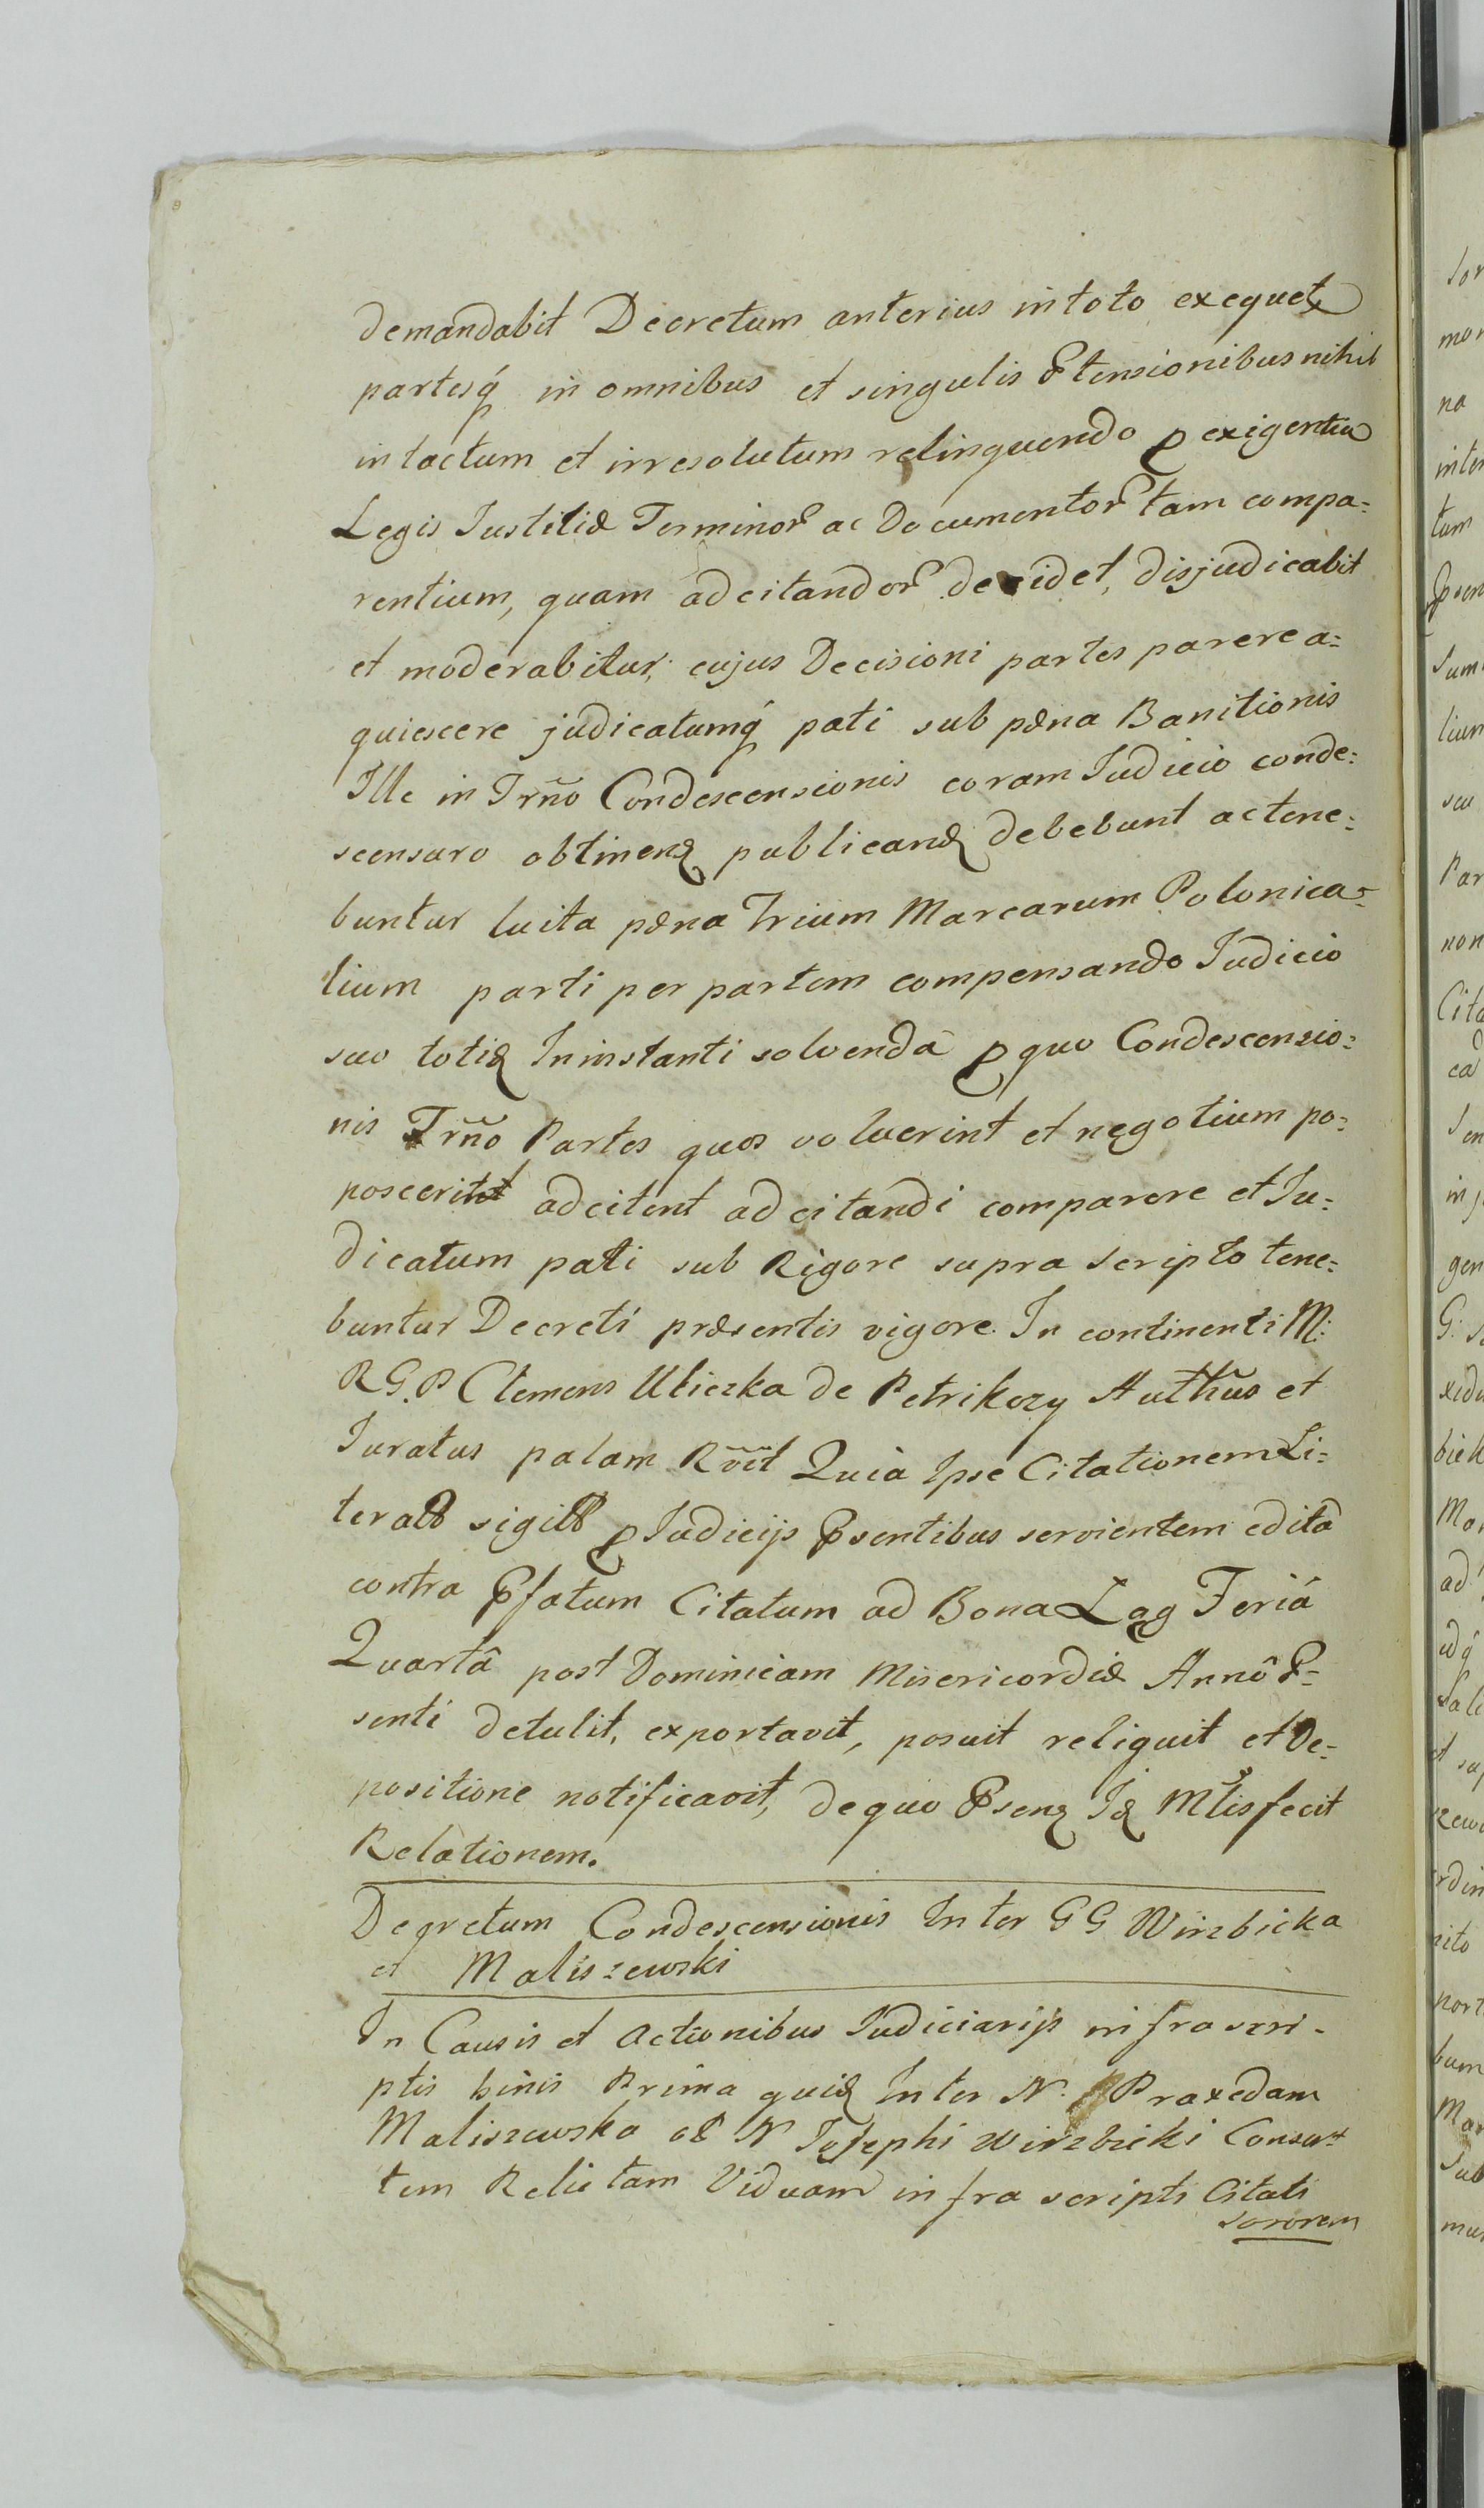 demandabit Decretum anterius in toto exequetꝛ
partesq́ in omnibus et singulis Ptensionibus nihil
intactum et irresolutum relinquendo ꝑ exigentia
Legis Iustitiæ Terminoꝝ ac Documentoꝝ tam compa:
rentium, quam adcitandoꝝ decidet, disjudicabit
et moderabitur, cujus Decisioni partes parere a:
quiescere judicatumq́ pati sub pæna Banitionis
Ille in Trñõ Condescensionis coram Iudicio conde:
scensuro obtinenꝫ publicanꝫ debebunt ac tene:
buntur luita pæna Trium Marcarum Polonica:
lium parti per partem compensando Iudicio
suo totiꝫ Ininstanti solvenda ꝑ quo Condescensio:
nis Trñõ Partes quos voluerint et negotium po:
poscerint adcitent adcitandi comparere et Iu:
dicatum pati sub Rigore supra scripto tene:
buntur Decreti præsentis vigore. In continenti M:
R G. P Clemens Uliczka de Petrikozy Authũs et
Iuratus palam Rõvit Quia Ipse Citationem Li:
teral sigill ꝑ Iudicijs Psentibus servientem edita
contra Pfatum Citatum ad Bona Łąg Feriâ
Quartâ post Dominicam Misericordiæ Annô P:
senti detulit, exportavit, posuit reliquit et De:
positione notificavit, de quo Psenꝫ Iꝫ Mtlis fecit
Relationem.
Degretum Condescensionis Inter G G Wirzbicka
et Maliszewski
In Causis et Actionibus Iudiciarijs infra scri-
ptis binis Prima quiꝫ Inter N. Praxedam
Maliszewska ol N Iosephi Wirzbicki Consor
tem Relictam Viduam infra scripti Citati
sororem